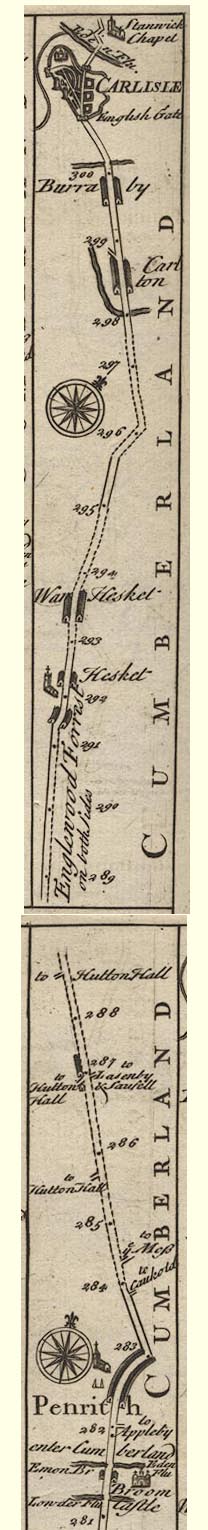 Stanwick
Chapel
CARLISLE
English Gate
300
Burra by
299
Carl
ton
298
297
296
295
294
War Hesket
293
Hesket
292
291
Englewood Forrest
on both Sides
290
289
CUMBERLAND
to Hutton Hall
288
287
to
Lasenby
& Saufell
to
Hutton
Hall
286
to
Hutton Hall
285
to
ye Mess
to
284
283
Penrith
CUMBERLAND
to
Appleby
282
enter Cum berland
Emon Br
Eden
Flu
Broom
Castle
Lowder Flu
281